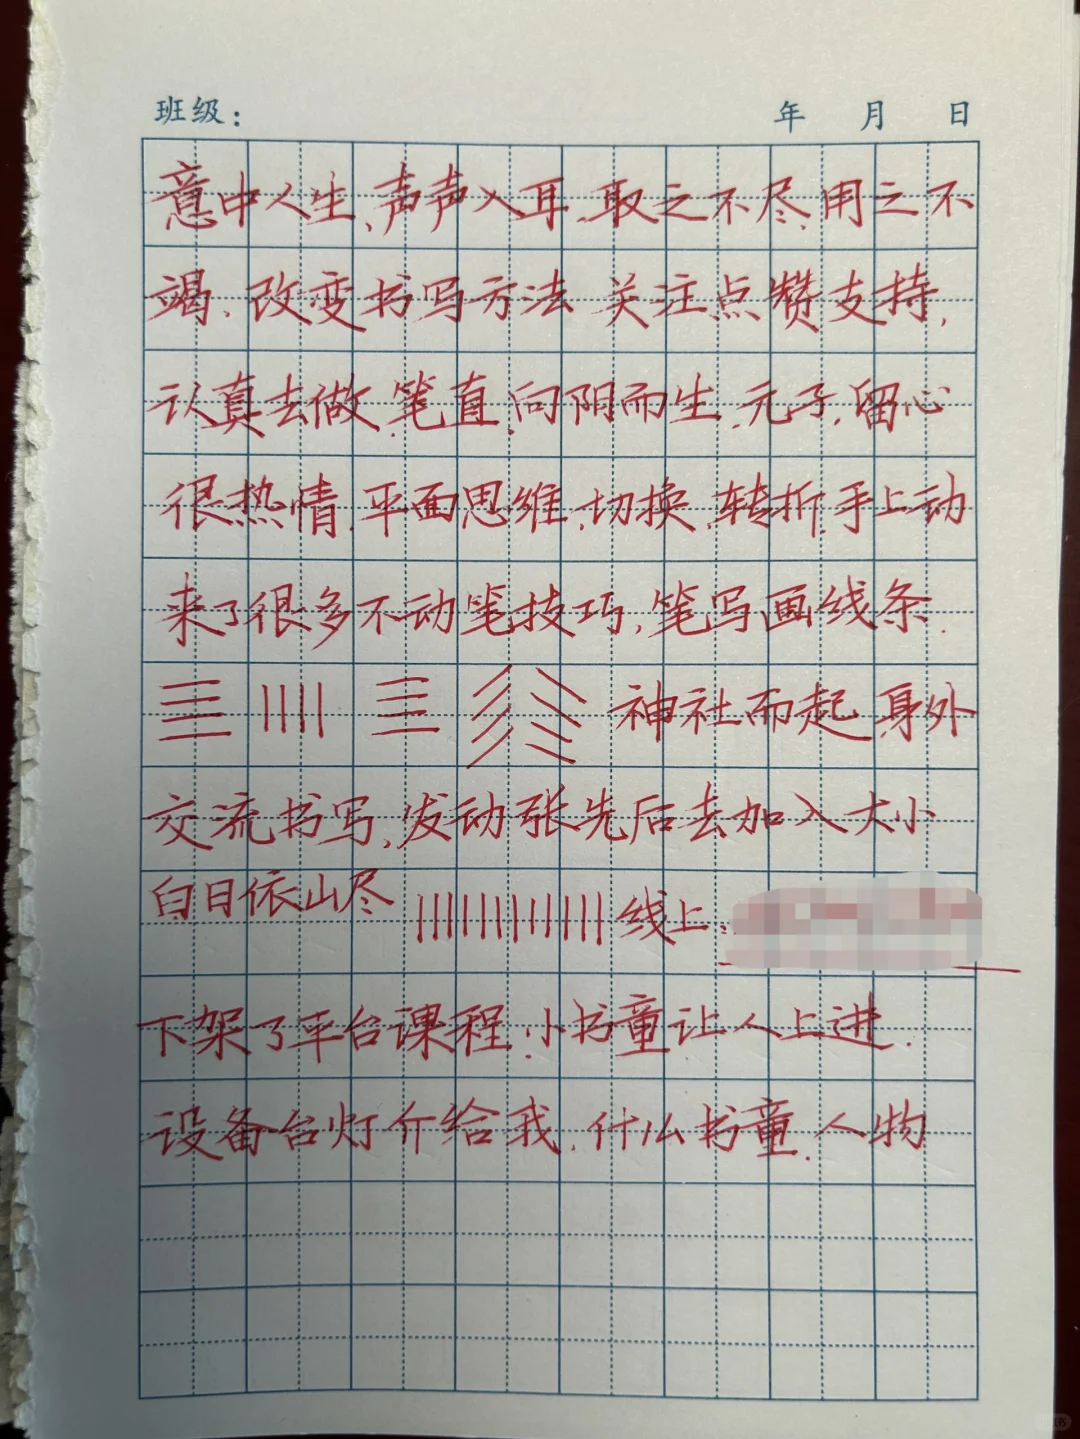 班级： 年 月 日
意中人生、声声入耳、取之不尽、用之不
竭、改变书写方法 关注点赞支持,
认真去做、笔直、向阴而生、元子、留心
很热情、平面思维、切换、转折、手上动
来了很多不动笔技巧、笔写画线条.
神社而起、身外
交流书写、发动张先后去加入大小
白日依山尽 线上、
下架了平台课程、小书童让人上进.
设备台灯介给我、什么书童、人物